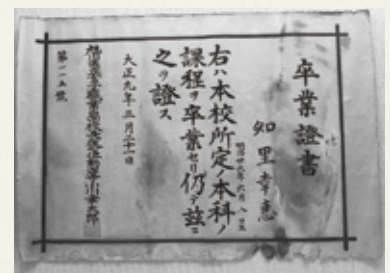 卒業證書
知里幸惠
明治三十六年六月八日生
右ハ本校所定ノ本科ノ
課程ヲ卒業セリ仍テ茲ニ
之ヲ證ス
大正九年三月二十一日
第一一五號